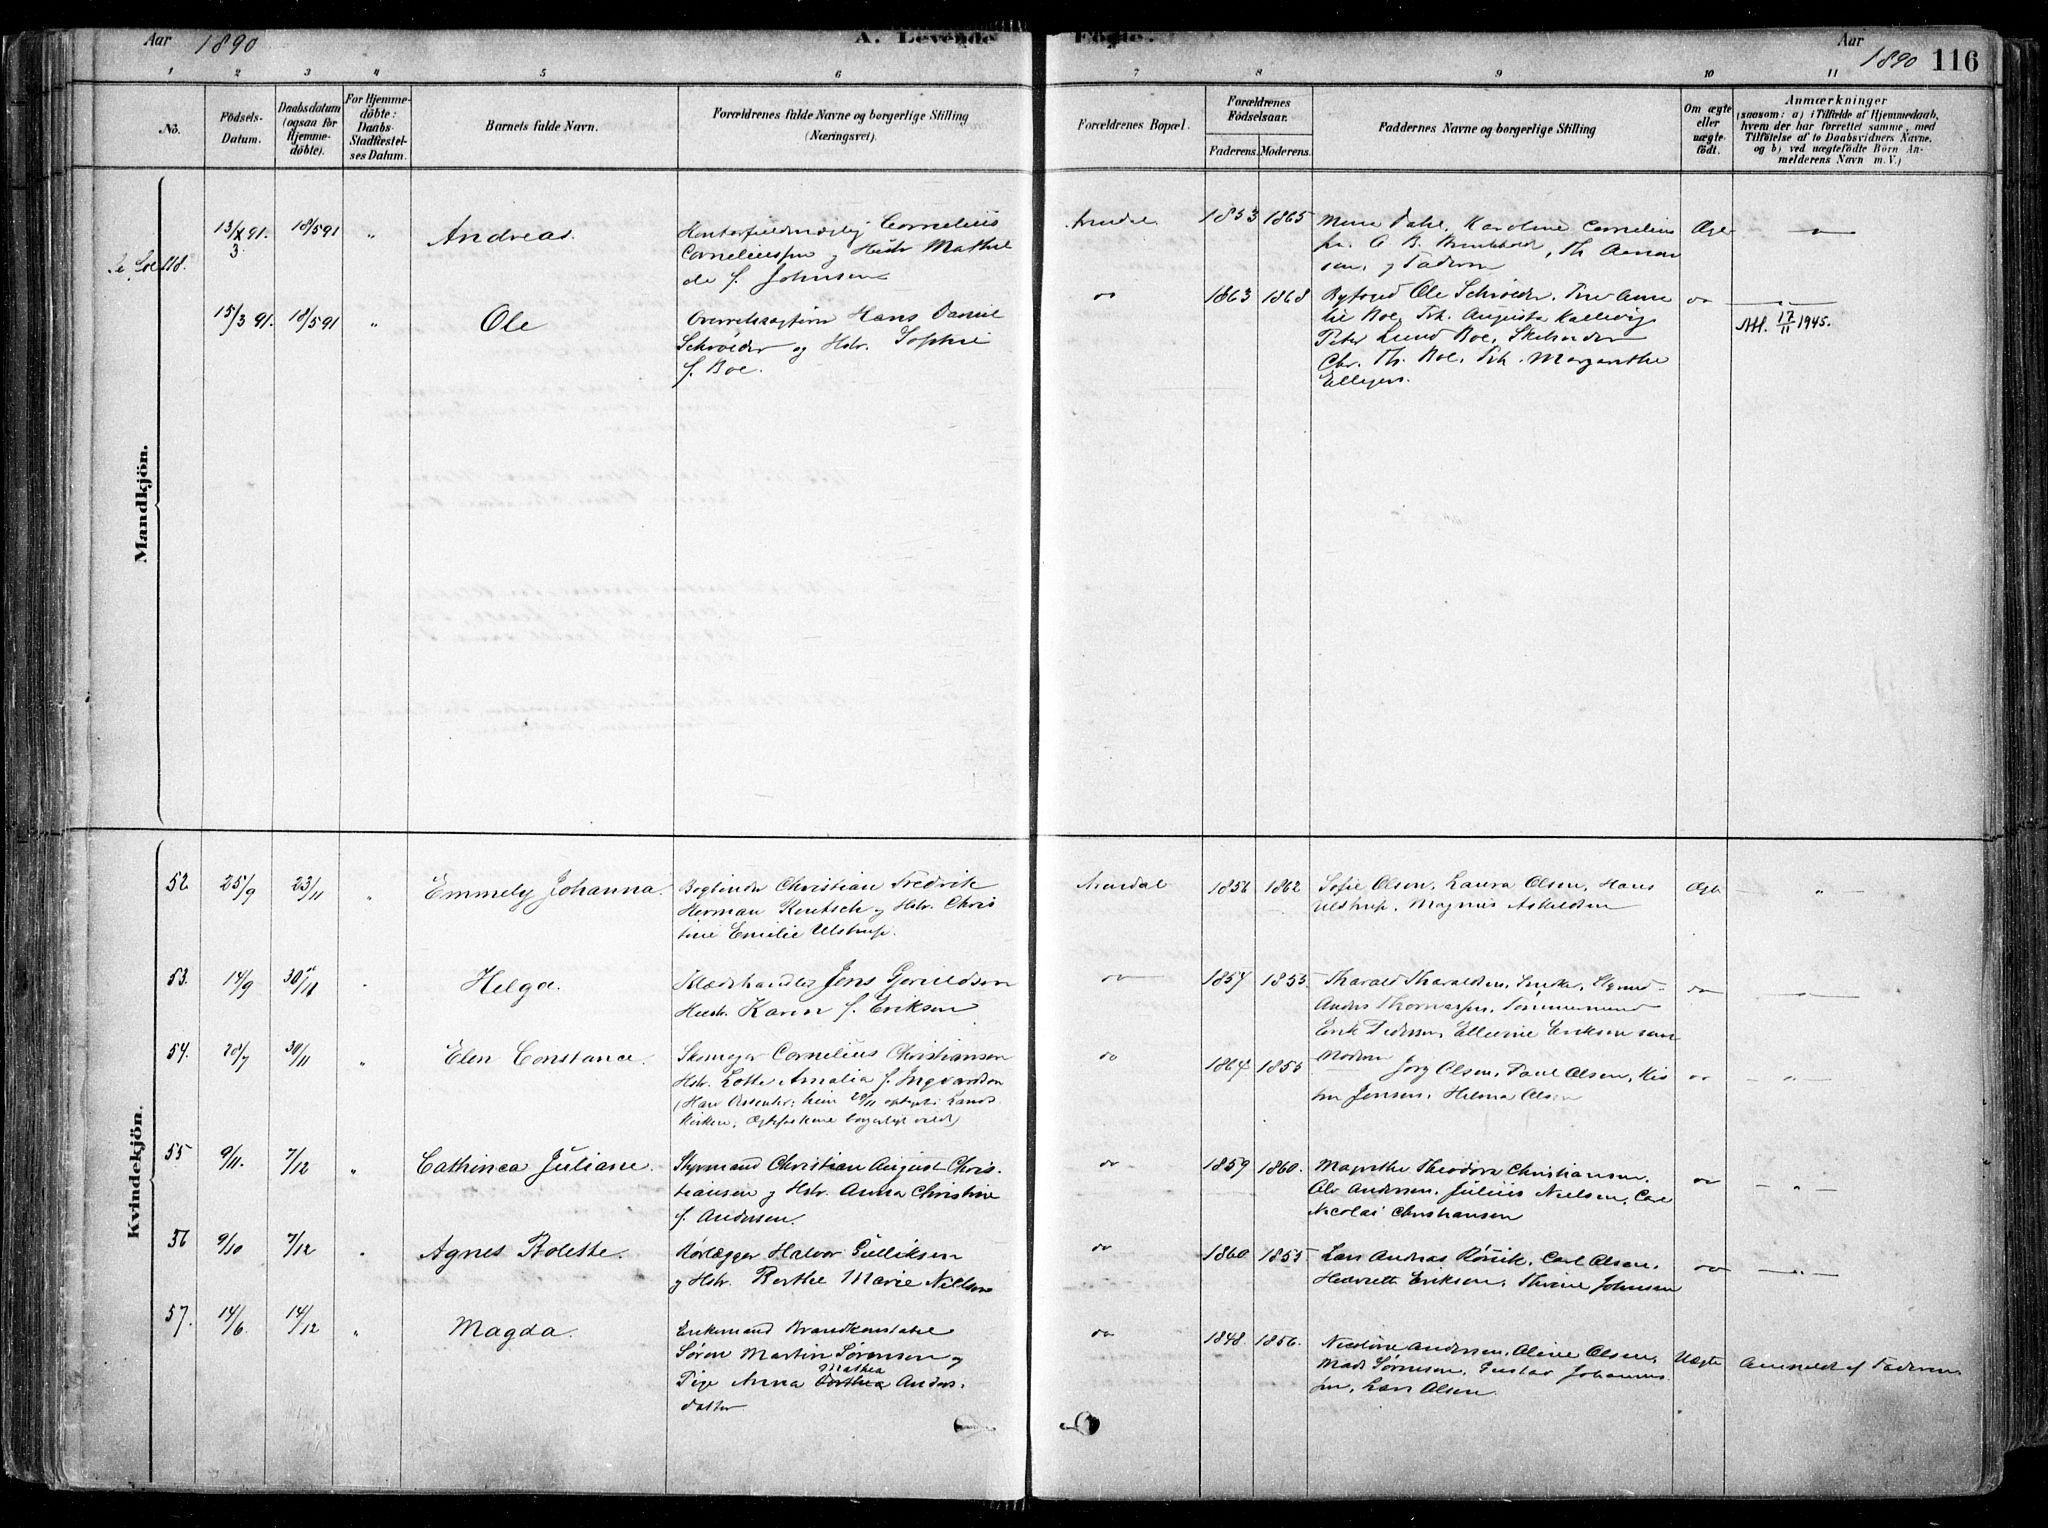 Aar 1890
A. Levende
Födte.
Aar 1890
116
1 2 3 4 5 6 7 8 9 10 11
No.
Födsels-
Datum.
Daabsdatum
(ogsaa for
Hjemme-
döbte).
For Hjemme-
döbte:
Daabs-
Stadfæstel-
ses Datum.
Barnets fulde Navn.
Forældrenes fulde Navne og borgerlige Stilling
(Næringsvei).
Forældrenes Bopæl.
Forældrenes
Födselsaar.
Faderens. Moderens.
Faddernes Navne og borgerlige Stilling
Om ægte
eller
uægte
födt.
Anmærkninger
(saasom: a) i Tilfælde af Hjemmedaab,
hvem der har forrettet samme, med
Tilföielse af to Daabsvidners Navne,
og b) ved uægtefödte Börn An-
melderens Navn m. V.)
Mandkjön.
18/5 91 " Andreas.
Cornelius
Corneliussen og Hustr Mathil
de f. Johnsen
Arendal 1853 1865
Dahl, Karoline Cornelius
og Faderen
Ægte
15/3 91. 18/5 91 " Ole
Hans Daniel
Schrøder og Hstr. Sophie
f. Boe.
do 1863 1868
Ole Schrøder, Fru Anne
lie Boe, Frk. Augusta Kallevig
Peter Lund Boe, Skibsreder
Chr. Th. Boe, Frk. Margarethe
Ellegers.
do
Att. 17/11 1945.
Kvindekjön.
52 25/9 23/11 " Emmely Johanna.
Bogbinder Christian Fredrik
Herman Rentsch og Hstr. Chris
tine Emilie Ulstrup.
Arendal 1856 1862
Sofie Olsen, Laura Olsen, Hans
Ulstrup, Magnus Askildsen
Ægte "
53. 14/9 30/11 Helga.
Klædehandler Jens Gjeruldsen
Hustr. Karen f. Eriksen
do 1857 1855
Tharald Tharaldsen, Smed
Tømmermand
Erik Pedersen, Ellevine Eriksen samt
Moderen
do
54. 20/7 30/11 " Elen Constance.
Skomager Cornelius Christiansen
Hstr. Lotte Amalia f. Ingvardsen
do 1864 1855
Jørg Olsen, Paul Olsen,
Jensen, Helma Olsen
do "
55 9/11. 7/12 " Cathinca Juliane.
Styrmand Christian August Chris-
tiansen og Hstr. Anna Christine
f. Andersen.
do 1859 1860.
Magrethe Theodora Christiansen,
Olv Andersen, Julius Nielsen, Carl
Nicolai Christiansen
do "
56 9/10 7/12 Agnes Bolette.
Rørlægger Halvor Gulliksen
og Hstr. Berthe Marie Nilsen
do 1860 1855
Lars Andreas Carl Olsen,
Henriette Eriksen, Thrine Johnsen
do "
57. 14/6 14/12 " Magda.
Enkemand Brandkonstabel
Søren Martin Sørensen og
Mathea
Pige Anna Dorthea Anders.
datter
do 1848. 1856.
Nicoline Andersen, Aline Olsen,
Mads Sørensen, Gustav Johannes
sen, Lars Olsen.
Uægte
Anmeldt af Faderen